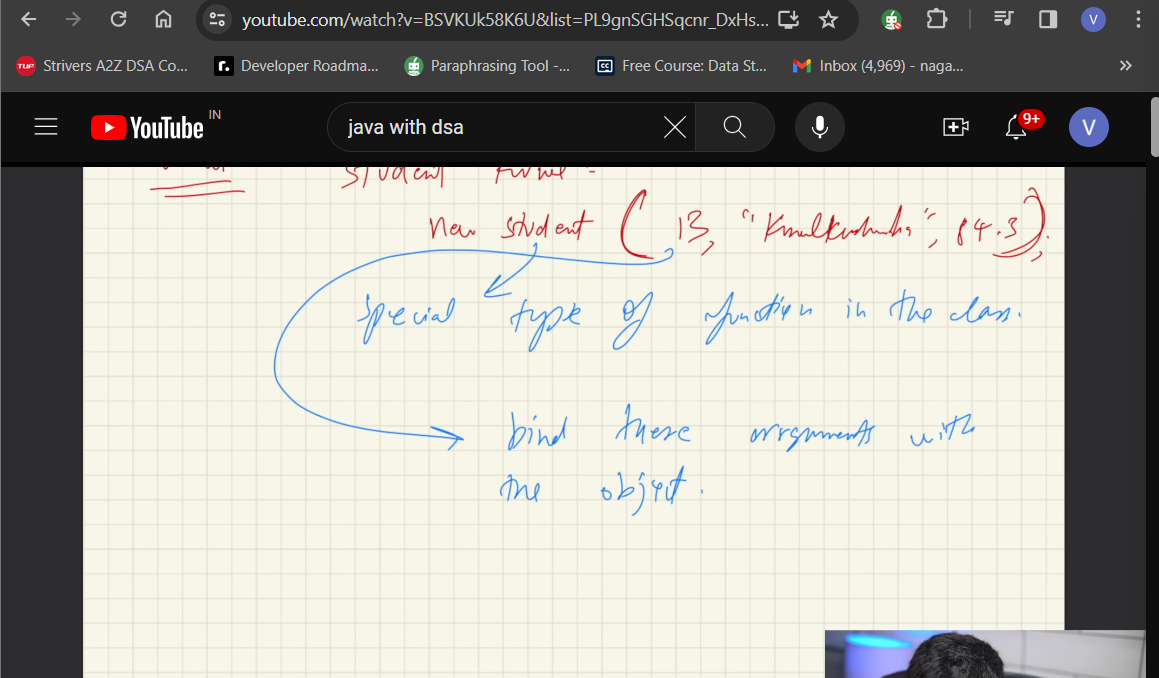 youtube.com/watch?v=BSVKUk58K6U&list=PL9gnSGHSqcnr_DxHs...
V
TUF Strivers A2Z DSA Co... r. Developer Roadma... Paraphrasing Tool -... CC Free Course: Data St... Inbox (4,969) - naga... »
YouTube IN java with dsa 9+ V
student
new student ( 13, "Kunalkushwaha", 84.3);
special type of function in the class.
bind these arguments with
the object.